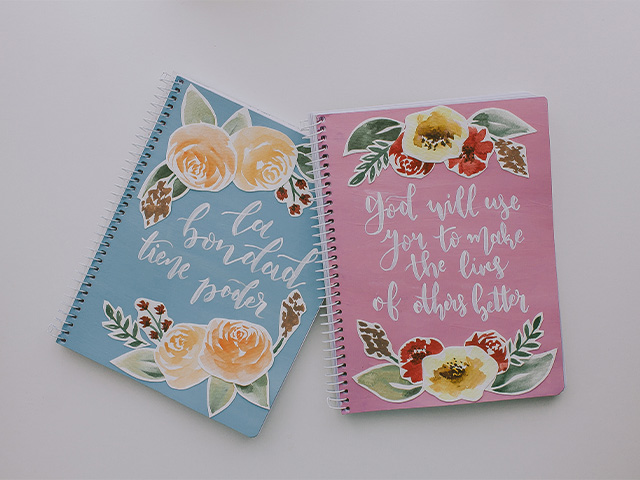 la
bondad
tiene poder
God will use
you to make
the lives
of others better